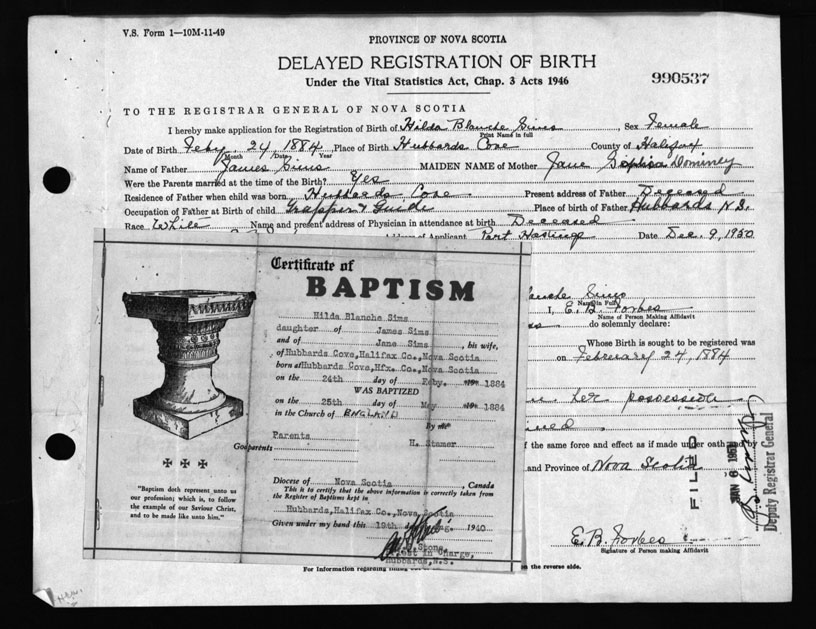 V.S. Form 1—10M-11-49
PROVINCE OF NOVA SCOTIA
DELAYED REGISTRATION OF BIRTH
Under the Vital Statistics Act, Chap. 3 Acts 1946
990537
TO THE REGISTRAR GENERAL OF NOVA SCOTIA
I hereby make application for the Registration of Birth of Hilda Blanche Sims, Sex Female
Print Name in full
Date of Birth Feby. 24, 1884, Place of Birth Hubbards Cove County of Halifax
Month Date Year
Name of Father James Sims MAIDEN NAME of Mother Jane Sophia Dominey
Were the Parents married at the time of the Birth? Yes
Residence of Father when child was born Hubbards Cove Present address of Father Deceased
Occupation of Father at Birth of child Trapping & Guide Place of birth of Father Hubbards N.S.
Race White Name and present address of Physician in attendance at birth Deceased
Address of Applicant Port Hastings Date Dec. 9, 1950
Certificate of
BAPTISM
Hilda Blanche Sims
daughter of James Sims
and of Jane Sims, his wife,
of Hubbards Cove, Halifax Co., Nova Scotia
born at Hubbards Cove, Hfx. Co., Nova Scotia
on the 24th day of Feby. 19 1884
WAS BAPTIZED
on the 25th day of May 19 1884
in the Church of ENGLAND
By me
Parents H. Stamer
Godparents
Diocese of Nova Scotia, Canada
This is to certify that the above information is correctly taken from
the Register of Baptisms kept in
Hubbards, Halifax Co., Nova Scotia
Given under my hand this 19th Aug. 1940
Stone,
Priest in Charge,
Hubbards, N.S.
"Baptism doth represent unto us
our profession; which is, to follow
the example of our Saviour Christ,
and to be made like unto him."
lanche Sims
Name in Full
I, E. B. Forbes
Name of Person Making Affidavit
do solemnly declare:
Whose Birth is sought to be registered was
on February 24, 1884
her possession
f the same force and effect as if made under oath and
and Province of Nova Scotia
FILED
JAN 6 1951
Deputy Registrar General
E. B. Forbes
Signature of Person making Affidavit
For information regarding
on the reverse side.